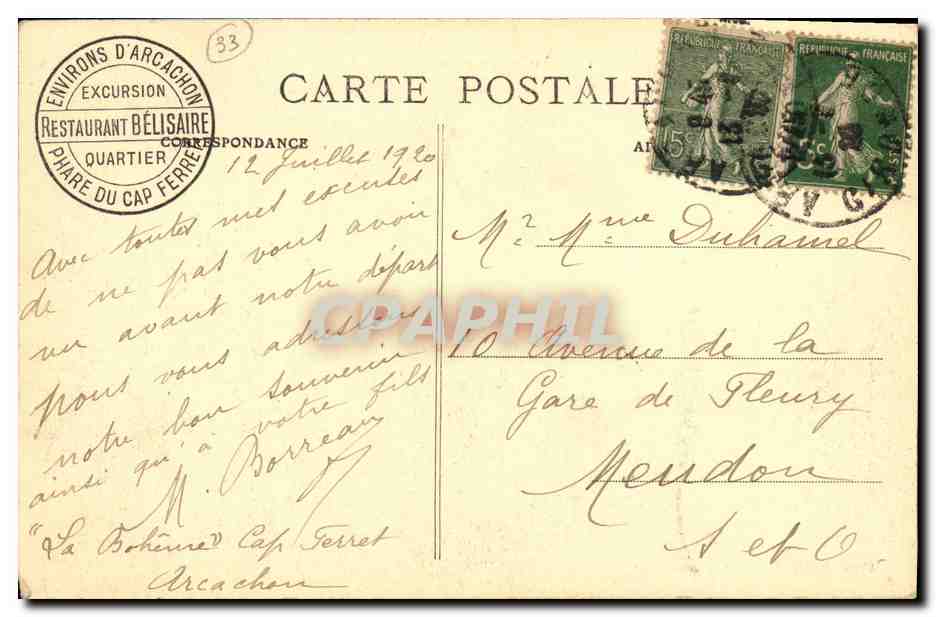 33
ENVIRONS D'ARCACHON
EXCURSION
RESTAURANT BÉLISAIRE
QUARTIER
PHARE DU CAP FERRET
CARTE POSTALE
RÉPUBLIQUE FRANÇAISE
15c
RÉPUBLIQUE FRANÇAISE
5c
POSTES
CORRESPONDANCE
12 Juillet 1920
Avec toutes mes excuses
de ne pas vous avoir
vu avant notre départ
nous vous adressons
notre bon souvenir
ainsi qu'à votre fils
M. Borreau
"La Bohême" Cap Ferret
Arcachon
Mr Mme Duhamel
10 Avenue de la
Gare de Fleury
Meudon
S et O.
CPAPHIL